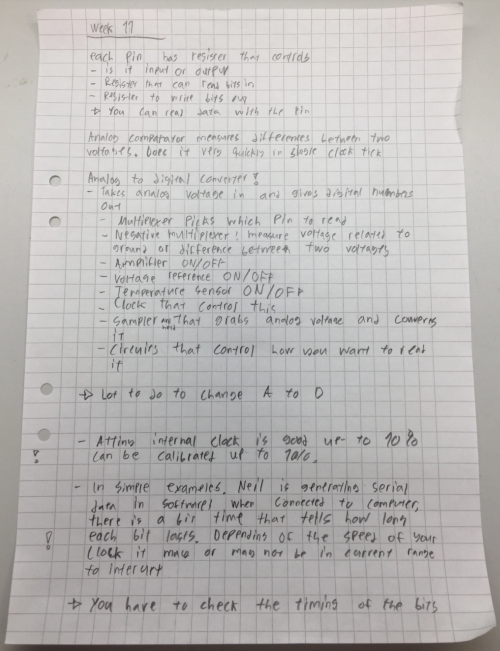 Week 11
each pin has register that controls
- is it input or output
- Register that can read bits in
- Register to write bits out
→ You can read data with the pin
Analog comparator measures differences between two
voltages. Does it very quickly in single clock tick
Analog to digital converter!
- Takes analog voltage in and gives digital numbers
out
- Multiplexer picks which pin to read
- Negative multiplexer: measure voltage related to
ground or difference between two voltages
- Amplifier ON/OFF
- Voltage reference ON/OFF
- Temperature sensor ON/OFF
- Clock that control this
- Sampler and hold that grabs analog voltage and converts
it
- Circuits that control how you want to read
it
→ Lot to do to change A to D
- Attiny internal clock is good up to 10%
! can be calibrated up to 1%.
- In simple examples, Neil is generating serial
data in software, when connected to computer,
there is a bit time that tells how long
! each bit lasts. Depending of the speed of your
clock it may or may not be in current range
to interupt
→ You have to check the timing of the bits